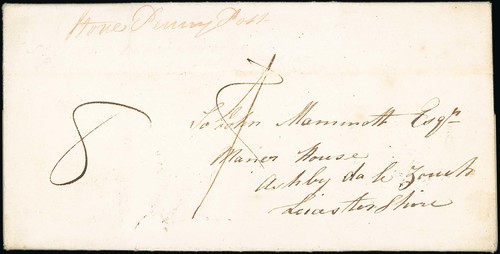 Hove Penny Post
8
To John Mammatt Esqr
Manor House
Ashby de la Zouch
Leicestershire